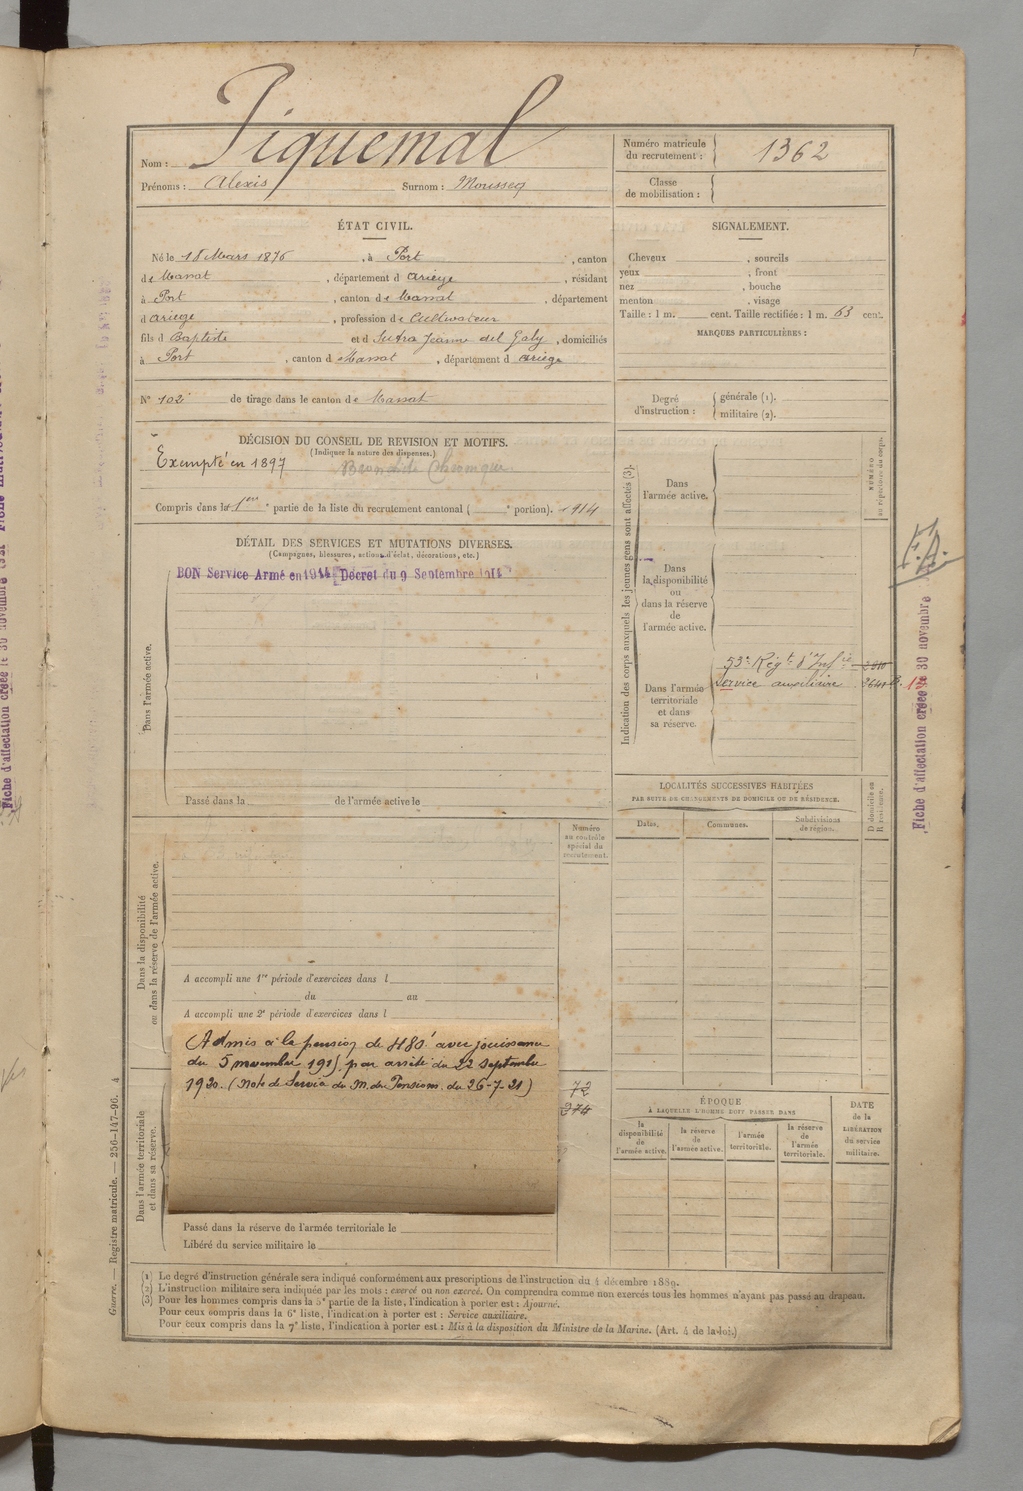 Nom : Piquemal
Prénoms : Alexis Surnom : Mousseq
Numéro matricule du recrutement : 1362
Classe de mobilisation :
ÉTAT CIVIL.
Né le 18 Mars 1876, à Port, canton
de Massat, département d Ariège, résidant
à Port, canton de Massat, département
d Ariège, profession de Cultivateur
fils d Baptiste et d Sutra Jeanne del Gaby, domiciliés
à Port, canton d Massat, département d Ariège
N° 102 de tirage dans le canton de Massat
SIGNALEMENT.
Cheveux , sourcils
yeux , front
nez , bouche
menton , visage
Taille : 1 m. cent. Taille rectifiée : 1 m. 63 cent.
MARQUES PARTICULIÈRES :
Degré d'instruction : générale (1).
militaire (2).
DÉCISION DU CONSEIL DE REVISION ET MOTIFS.
(Indiquer la nature des dispenses.)
Exempté en 1897 Bronchite Chronique
Compris dans la 1ere partie de la liste du recrutement cantonal ( e portion). 1914
DÉTAIL DES SERVICES ET MUTATIONS DIVERSES.
(Campagnes, blessures, actions d'éclat, décorations, etc.)
BON Service Armé en 1914 Décret du 9 Septembre 1914
Dans l'armée active.
Passé dans la de l'armée active le
Indication des corps auxquels les jeunes gens sont affectés (3).
NUMÉRO au répertoire du corps.
Dans l'armée active.
Dans la disponibilité ou dans la réserve de l'armée active.
Dans l'armée territoriale et dans sa réserve.
53e Régt d'Infie
Service auxiliaire
F.A.
Fiche d'affectation créée le 30 novembre
LOCALITÉS SUCCESSIVES HABITÉES
PAR SUITE DE CHANGEMENTS DE DOMICILE OU DE RÉSIDENCE.
Dates. Communes. Subdivisions de région. D domicile ou R résidence.
Numéro au contrôle spécial du recrutement.
Dans la disponibilité ou dans la réserve de l'armée active.
A accompli une 1re période d'exercices dans l
du au
A accompli une 2e période d'exercices dans l
Admis à la pension de 480f avec jouissance
du 5 novembre 1915 par arrêté du 22 Septembre
1920. (Note de Service du M. des Pensions du 26-7-21)
72
274
Dans l'armée territoriale et dans sa réserve.
Passé dans la réserve de l'armée territoriale le
Libéré du service militaire le
ÉPOQUE
À LAQUELLE L'HOMME DOIT PASSER DANS
la disponibilité de l'armée active.
la réserve de l'armée active.
l'armée territoriale.
la réserve de l'armée territoriale.
DATE de la LIBÉRATION du service militaire.
(1) Le degré d'instruction générale sera indiqué conformément aux prescriptions de l'instruction du 4 décembre 1889.
(2) L'instruction militaire sera indiquée par les mots : exercé ou non exercé. On comprendra comme non exercés tous les hommes n'ayant pas passé au drapeau.
(3) Pour les hommes compris dans la 5e partie de la liste, l'indication à porter est : Ajourné.
Pour ceux compris dans la 6e liste, l'indication à porter est : Service auxiliaire.
Pour ceux compris dans la 7e liste, l'indication à porter est : Mis à la disposition du Ministre de la Marine. (Art. 4 de la loi.)
Guerre. — Registre matricule. — 256-147-96. 4